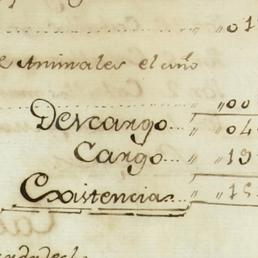 „ 01
Animales el año
„ 00
Descargo... „ 04
Cargo... „ 19
Existencias.. „ „ 15